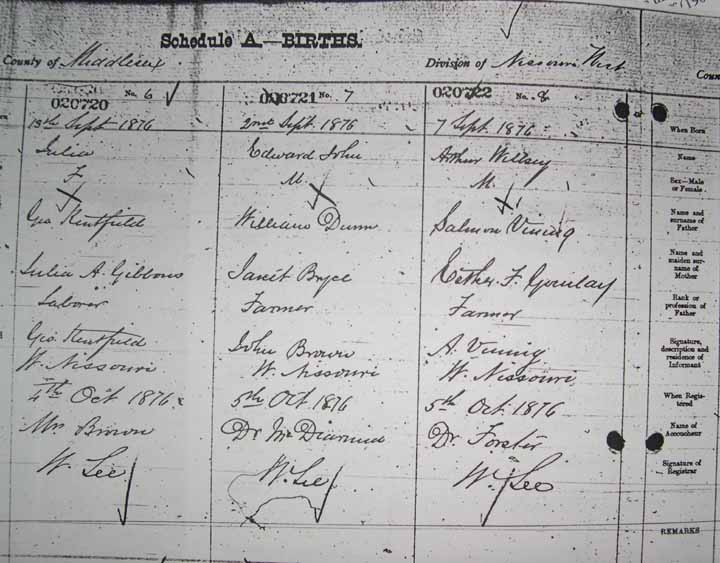 Schedule A.—BIRTHS.
County of Middlesex
Division of Nissouri West
Coun
020720 No. 6
13th Sept 1876
Julia
F
Geo Kentfield
Julia A. Gibbons
Laborer
Geo. Kentfield
W. Nissouri
4th Oct 1876
Mrs Brown
W. Lee
020721 No. 7
2nd Sept. 1876
Edward John
M.
William Dunn
Janet Bryce
Farmer
John Brown
W. Nissouri
5th Oct 1876
Dr Mc Diarmid
W. Lee
020722 No. 8
7 Sept. 1876
Arthur Willsey
M.
Salmon Vining
Esther F. Gourlay
Farmer
A. Vining
W. Nissouri
5th Oct. 1876
Dr. Forster
W. Lee
When Born
Name
Sex—Male
or Female.
Name and
surname of
Father
Name and
maiden sur-
name of
Mother
Rank or
profession of
Father
Signature,
description and
residence of
Informant
When Regis-
tered
Name of
Accoucheur
Signature of
Registrar
REMARKS